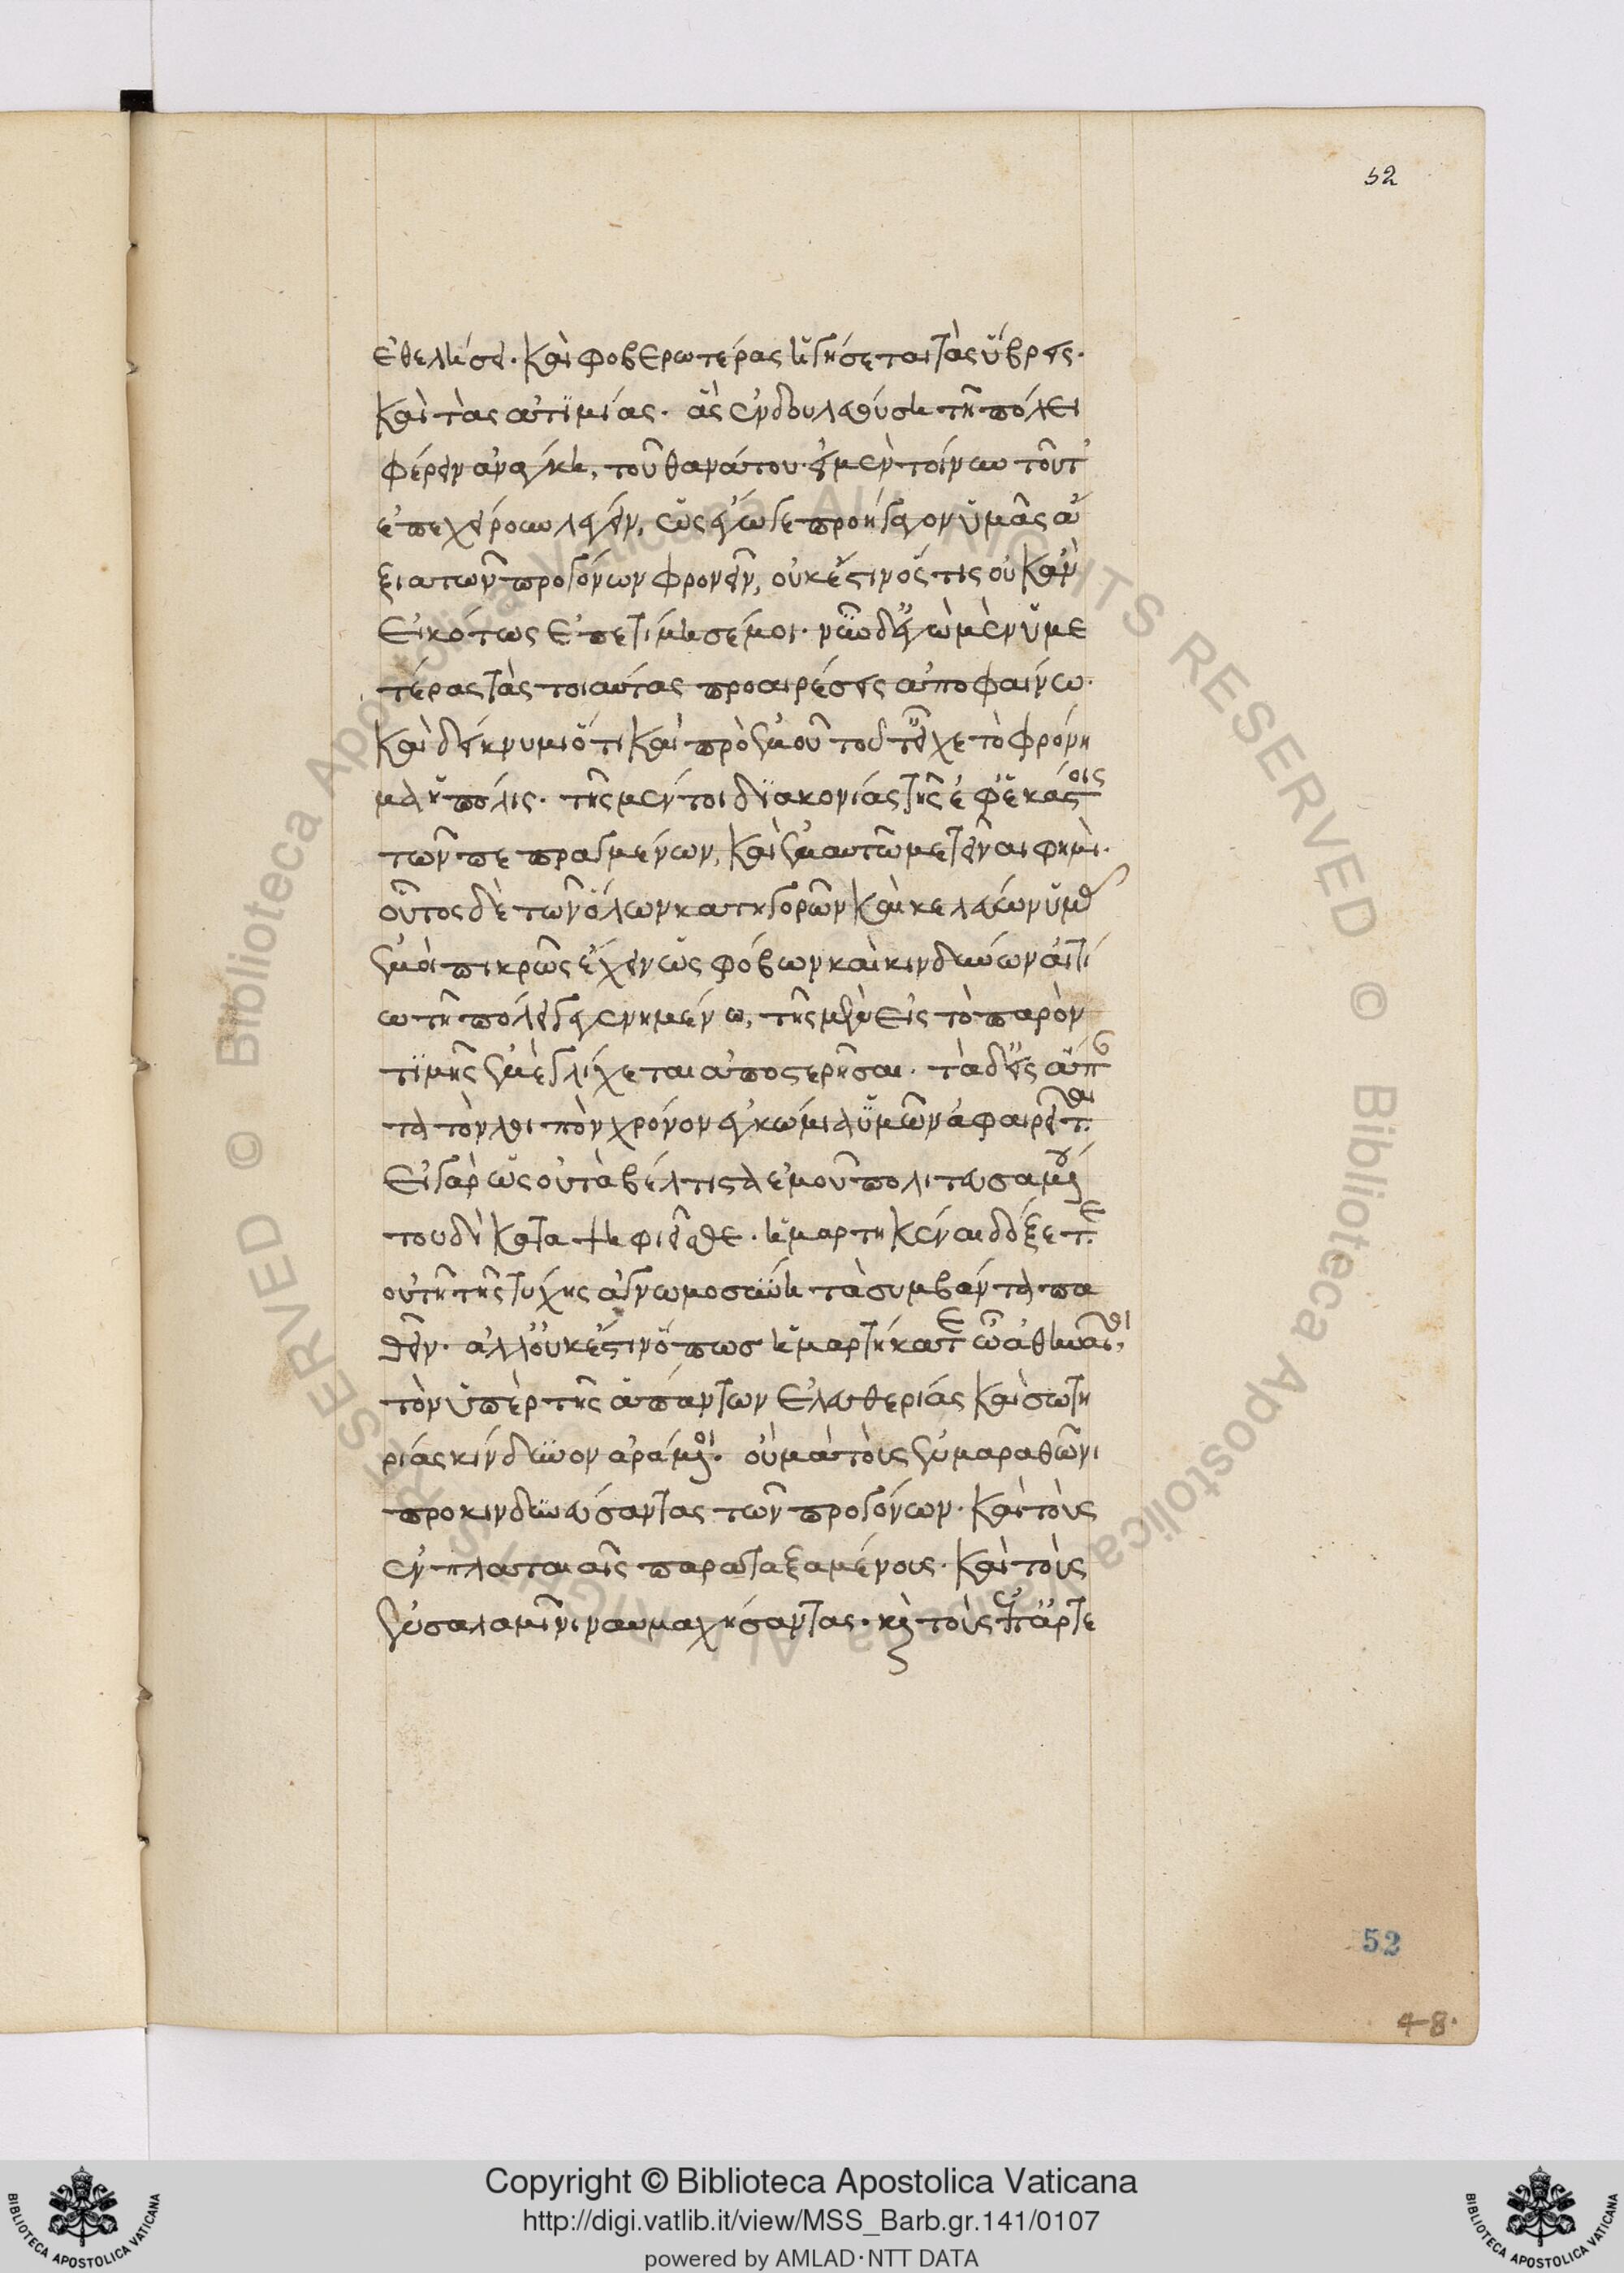 52
ἐθελήσει· καὶ φοβερωτέρας ἡγήσεται τὰς ὕβρεις·
καὶ τὰς ἀτιμίας· ἃς ἐν δουλευούσῃ τῇ πόλει
φέρειν ἀνάγκη, τοῦ θανάτου· εἰ μὲν τοίνυν τοῦτ'
ἐπεχείρουν λέγειν, ὡς ἐγώ γε προήγαγον ὑμᾶς ἄ
ξια τῶν προγόνων φρονεῖν, οὐκ ἔστιν ὅστις οὐκ ἂν
εἰκότως ἐπετίμησέ μοι· νῦν δ' ἐγὼ μὲν ὑμε
τέρας τὰς τοιαύτας προαιρέσεις ἀποφαίνω·
καὶ δείκνυμι ὅτι καὶ πρὸ ἐμοῦ τοῦτ' εἶχε τὸ φρόνη
μα ἡ πόλις· τῆς μέντοι διακονίας τῆς ἐφ' ἑκάστοις
τῶν πεπραγμένων, καὶ ἐμαυτῷ μετεῖναι φημί·
οὗτος δὲ τῶν ὅλων κατηγορῶν καὶ κελεύων ὑμᾶς
ἐμοὶ πικρῶς ἔχειν ὡς φόβων καὶ κινδύνων αἰτί
ω τῇ πόλει γεγενημένω, τῆς μὲν εἰς τὸ παρὸν
τιμῆς ἐμὲ γλίχεται ἀποστερῆσαι· τὰ δ' εἰς ἅπαν
τα τὸν λοιπὸν χρόνον ἐγκώμια ὑμῶν ἀφαιρεῖται·
εἰ γὰρ ὡς οὐ τὰ βέλτιστα ἐμοῦ πολιτευσαμένου
τουδὶ καταψηφιεῖσθε· ἡμαρτηκέναι δόξετε·
οὐ τῇ τῆς τύχης ἀγνωμοσύνῃ τὰ συμβάντα πα
θεῖν· ἀλλ' οὐκ ἔστιν ὅπως ἡμάρτητε ὦ ἄνδρες Ἀθηναῖοι,
τὸν ὑπὲρ τῆς ἁπάντων ἐλευθερίας καὶ σωτη
ρίας κίνδυνον ἀράμενοι· οὐ μὰ τοὺς ἐν μαραθῶνι
προκινδυνεύσαντας τῶν προγόνων· καὶ τοὺς
ἐν πλαταιαῖς παραταξαμένους· καὶ τοὺς
ἐν σαλαμῖνι ναυμαχήσαντας· καὶ τοὺς ἐπ' ἀρτε
52
48.